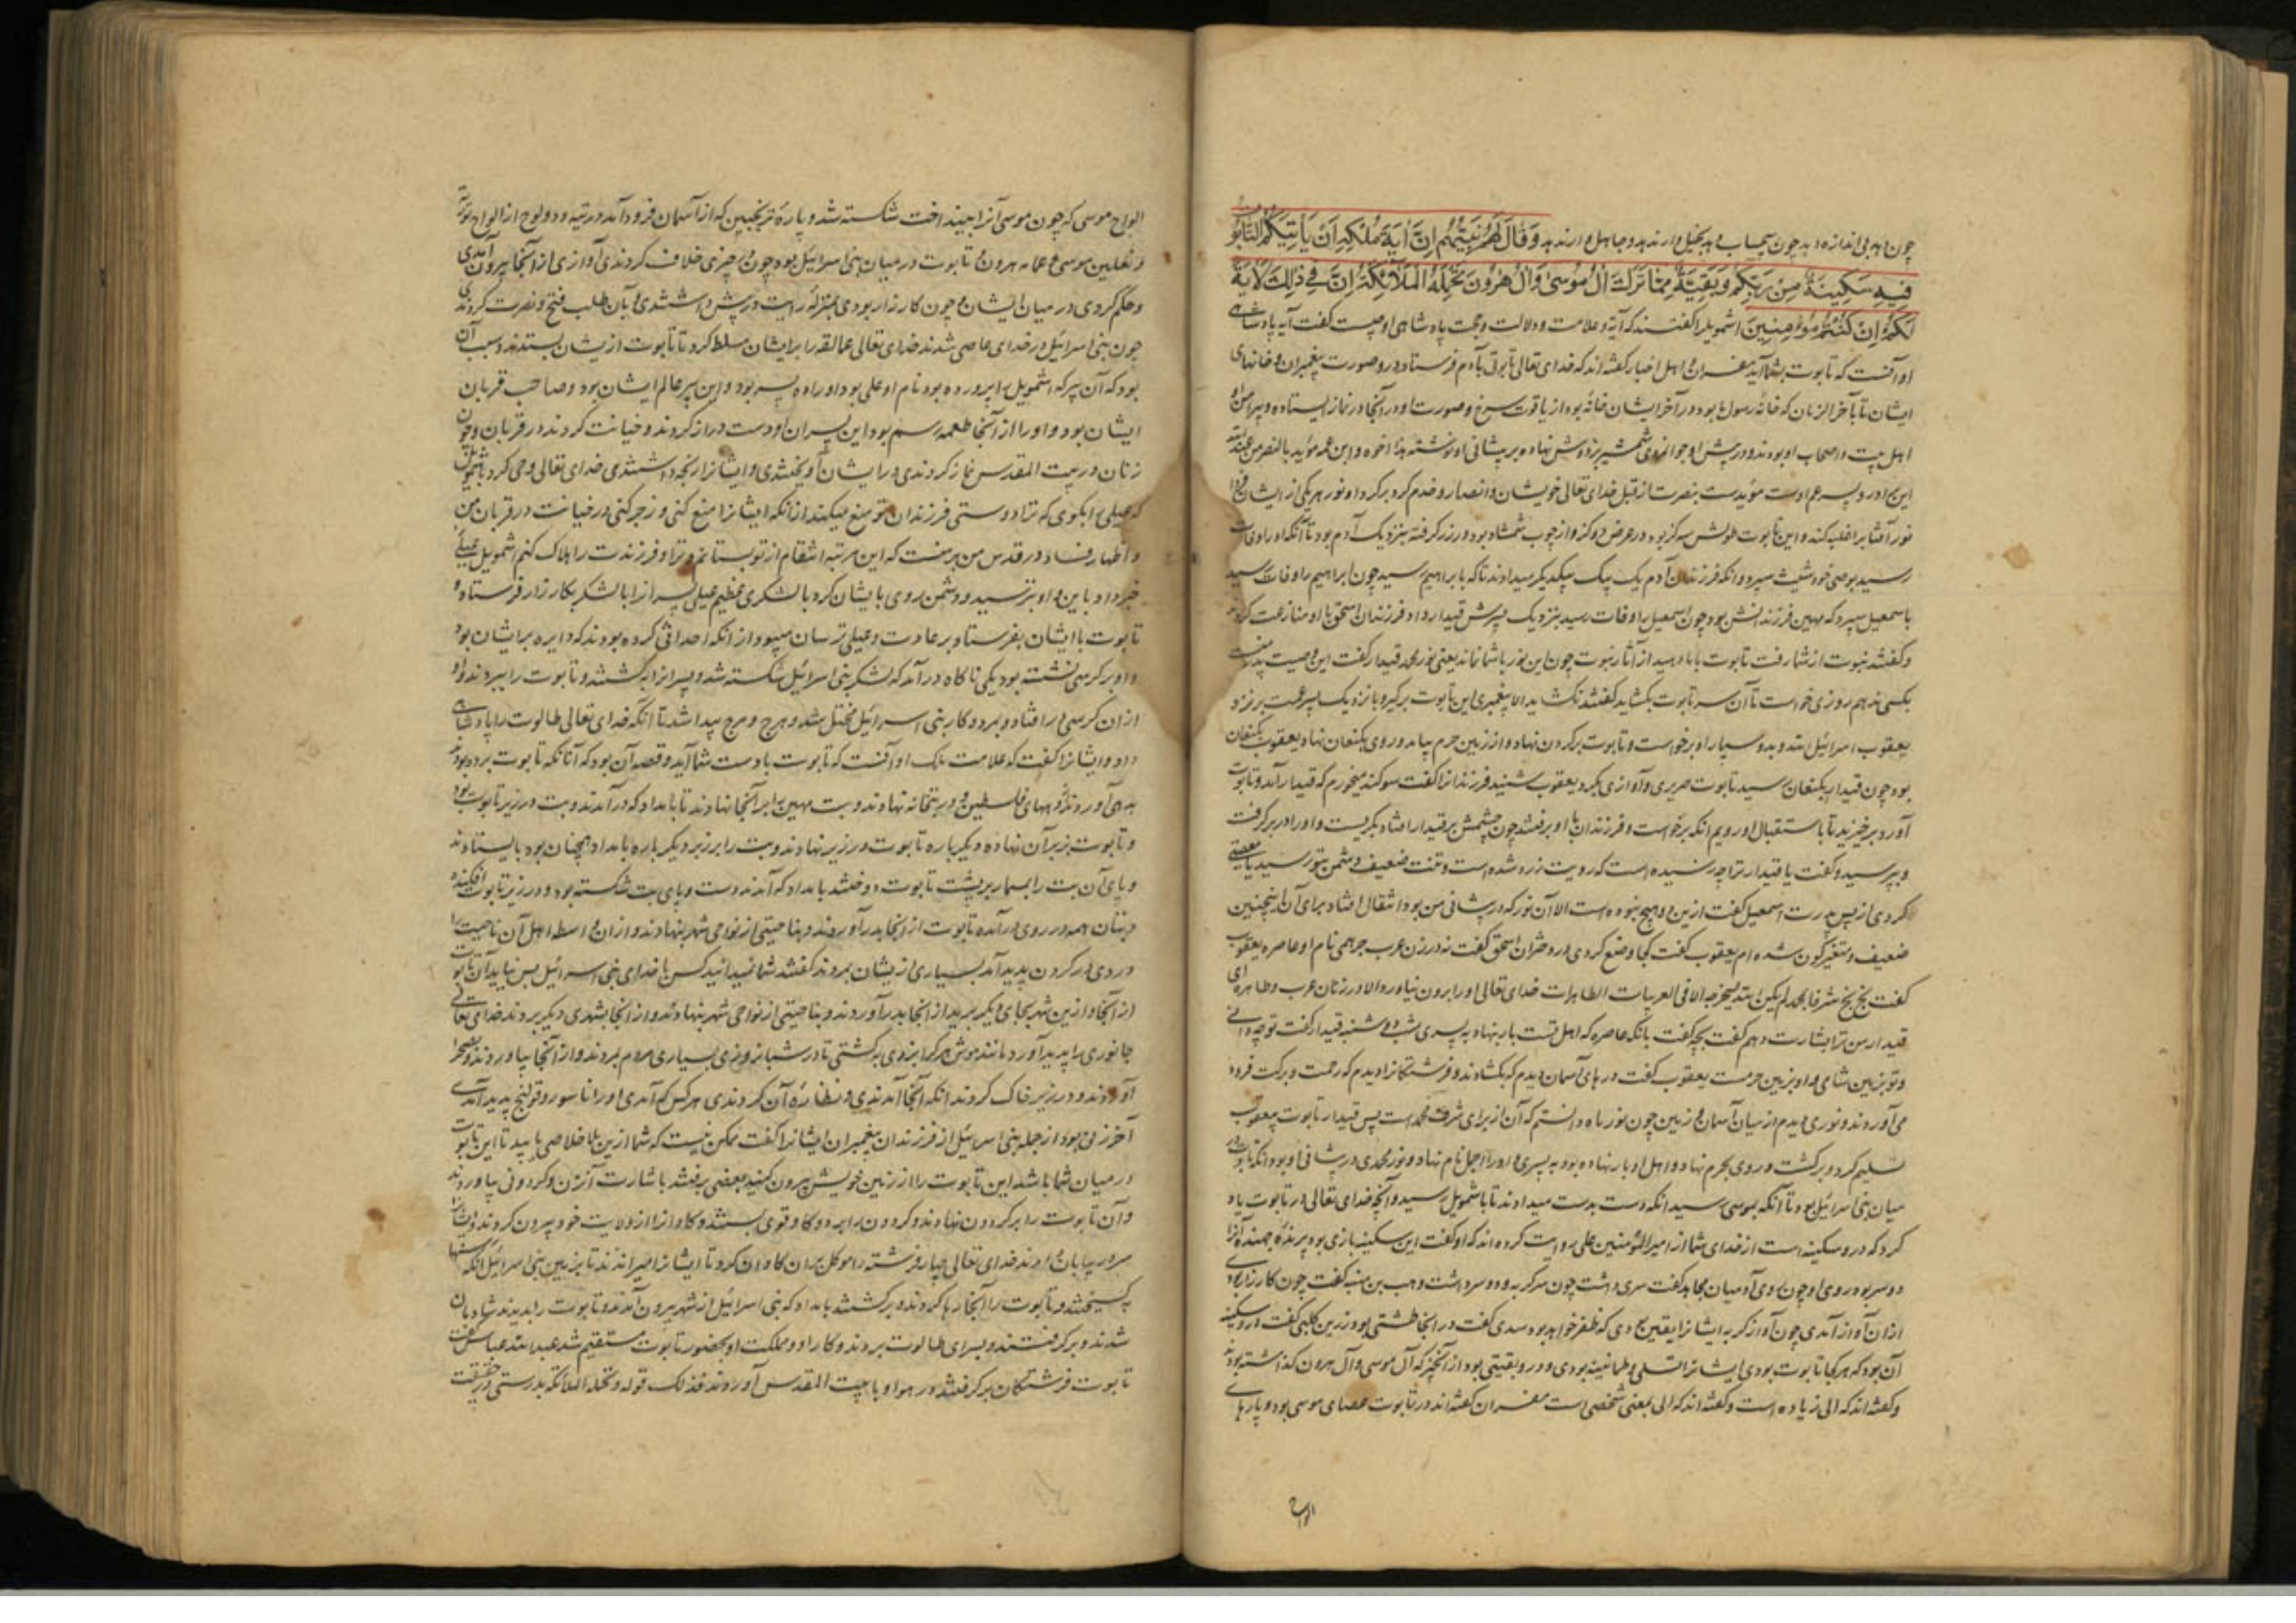 چون دهد بی اندازه دهد چون بحساب دهد بخیل دارند بد و جاهل دارند بد وَقَالَ لَهُمْ نَبِيُّهُمْ إِنَّ آيَةَ مُلْكِهِ أَنْ يَأْتِيَكُمُ التَّابُوتُ
فِيهِ سَكِينَةٌ مِنْ رَبِّكُمْ وَبَقِيَّةٌ مِمَّا تَرَكَ آلُ مُوسَى وَآلُ هَرُونَ تَحْمِلُهُ الْمَلَائِكَةُ إِنَّ فِي ذَلِكَ لَآيَةً
لَكُمْ إِنْ كُنْتُمْ مُؤْمِنِينَ اشمویل را گفتند که آیة و علامت و دلالت و حجت پادشاهی او چیست گفت آیه پادشاهی
او آنست که تابوت بشما آید مفسران و اهل اخبار گفته اند که خدای تعالی تابوتی بآدم فرستاد درو صورت پیغمبران و خانهای
ایشان تا بآخر الزمان که خانه رسول ع بود در آخر ایشان خانه بود از یاقوت سرخ و صورت او در آنجا در نماز ایستاده و پیرامن او
اهل بیت و اصحاب او بودند و در پیش او جوانمردی شمشیر بر دوش نهاده بر پیشانی او نوشته هذا اخوه و ابن عمه مؤید بالنصر من عند الله
این برادر و پسر عم اوست مؤیدست بنصرت از قبل خدای تعالی خویشان و انصار و خدم گرد بر گرد او نور هر یکی از ایشان
نور آفتاب را غلبه کند و این تابوت طولش سه گز بود در عرض دو گز و از چوب شمشاد بود در زر گرفته بنزدیک آدم بود تا آنگه او را وفات
رسید بوصی خود شیث سپرد و آنگه فرزندان آدم یک بیک بیکدیگر میدادند تا که با براهیم رسید چون ابراهیم را وفات رسید
باسمعیل سپرد که مهین فرزندانش بود چون اسمعیل را وفات رسید بنزدیک پسرش قیدار داد فرزندان اسحق با او منازعت کردند
و گفتند نبوت از شما رفت تابوت با ما دهید از آثار نبوت چون این نور با شما نماند یعنی نور محمد قیدار گفت این وصیت پدر منست
بکسی ندهم روزی خواست تا آن سر تابوت بگشاید گفتند نگشاید الا پیغمبری این تابوت برگیر و بنزدیک پسر عمت بر نزد
یعقوب اسرائیل الله و بدو سپار او برخواست و تابوت بر گردن نهاد و از زمین حرم بیامد و روی بکنعان نهاد یعقوب بکنعان
بود چون قیدار بکنعان رسید تابوت صریری و آوازی بکرد یعقوب بشنید فرزندانرا گفت سوگند میخورم که قیدار آمد و تابوت
آورد برخیزید تا باستقبال او رویم آنگه برخواست و فرزندان با او برفتند چون چشمش بر قیدار افتاد بگریست و او را در بر گرفت
و بپرسید و گفت یا قیدار ترا چه رسیده است که رویت زرد شده است و تنت ضعیف دشمن بتو رسید یا معصیتی
کردی از پس پدرت اسمعیل گفت ازین دو هیچ نبوده است الا آن نور که در پیشانی من بود انتقال افتاد برای آن اینچنین
ضعیف و متغیر گون شده ام یعقوب گفت کجا وضع کردی در دختران اسحق گفت نه در زن عرب جرهمی نام او عاصره یعقوب
گفت بخ بخ شرفا بمحمد لم یکن الله لیخرجه الا فی العربیات الطاهرات خدای تعالی او را برون نیاورد الا در زنان عرب و طاهره ای
قیدار من ترا بشارت دهم گفت بچه گفت بانکه عاصره که اهل تست بار بنهاد به پسری شب دوشنبه قیدار گفت تو چه دانی
و تو بزمین شامی و او بزمین حرمست یعقوب گفت درهای آسمان دیدم که بگشادند و فرشتگانرا دیدم که رحمت و برکت فرود
می آوردند و نوری دیدم از میان آسمان و زمین چون نور ماه دانستم که آن از برای شرف محمد است پس قیدار تابوت بیعقوب
تسلیم کرد و برگشت و روی بحرم نهاد و اهل او بار نهاده بود به پسری و او را حمل نام نهاد و نور محمدی در پیشانی او بود آنگه تابوت در
میان بنی اسرائیل بود تا آنگه بموسی رسید آنگه دست بدست میدادند تا باشمویل رسید و آنچه خدای تعالی در تابوت یاد
کرد که درو سکینه است از خدای شما از امیر المؤمنین علی روایت کرده اند که او گفت این سکینه بادی بود
دو سر بود روی او چون روی آدمیان مجاهد گفت سری داشت چون سر گربه و دو سر داشت وهب بن منبه گفت چون کارزار بودی
ازان آواز آمدی چون آواز گربه ایشانرا یقین بودی که ظفر خواهد بود سدی گفت در آنجا طشتی بود زرین کلبی گفت از سکینه
آن بود که هر کجا تابوت بودی ایشانرا تسلی و طمانینه بودی و درو بقیتی بود از آنچیز که آل موسی و آل هرون گذاشته بودند
و گفته اند که الی زیاده است و گفته اند که الی بمعنی شخصی است مفسران گفته اند در تابوت عصای موسی بود و پارهای
الواح
الواح موسی که چون موسی آنرا بینداخت شکسته شد و پاره ترنجبین که از آسمان فرود آمد در تیه و دو لوح از الواح تورة
و نعلین موسی و عمامه هرون و تابوت در میان بنی اسرائیل بود چون در چیزی خلاف کردندی آوازی از آنجا بیرون آمدی
و حکم کردی در میان ایشان و چون کارزار بودی بمنزله رایت در پیش داشتندی و بآن طلب فتح و نصرت کردندی
چون بنی اسرائیل در خدای عاصی شدند خدای تعالی عمالقه را بر ایشان مسلط کرد و تا تابوت از ایشان بستدند و سبب آن
بود که آن پیر که اشمویل را پرورده بود نام او عیلی بود او را دو پسر بود و این پیر عالم ایشان بود و صاحب قربان
ایشان بود و او را از آنجا طعمه رسم بود این پسران او دست دراز کردند و خیانت کردند در قربان و چون
زنان در بیت المقدس نماز کردندی در ایشان آویختندی و ایشانرا رنجه داشتندی خدای تعالی وحی کرد باشمویل
که عیلی را بگوی که ترا دوستی فرزندان تو منع میکند از انکه ایشانرا منع کنی و زجر کنی در خیانت در قربان من
و اظهار فساد در قدس من بر منست که این مرتبه انتقام از تو بستانم و ترا و فرزندت را هلاک کنم اشمویل عیلی را
خبر داد باین و او بترسید و دشمن روی بایشان کرد با لشکری عظیم عیلی پسرانرا با لشکر بکارزار فرستاد و
تابوت با ایشان بفرستاد بر عادت و عیلی ترسان میبود از انکه احداثی کرده بودند که دایره بر ایشان بود
و او بر کرسی نشسته بود یکی ناگاه درآمد که لشکر بنی اسرائیل شکسته شد و پسرانرا بکشتند و تابوت را ببردند و او
ازان کرسی درافتاد و بمرد و کار بنی اسرائیل مختل شد و هرج و مرج پیدا شد تا آنگه خدای تعالی طالوت را پادشاهی
داد و ایشانرا گفت که علامت ملک او آنست که تابوت با دست شما آید و قصه آن بود که آنانکه تابوت برده بودند
بدهی آوردند از دههای فلسطین و در بتخانه نهادند و بت مهین را بر آنجا نهادند تا بامداد که درآمدند و بت در زیر تابوت بود
و تابوت بزبر آن نهاده دیگر باره تابوت در زیر نهادند و بت را بر زبر دیگر باره بامداد همچنان بود بایستادند
و پای آن بت را بمسمار بر پشت تابوت دوختند بامداد که آمدند دست و پای بت شکسته بود و در زیر تابوت افکنده
و بتان همه در روی درآمده تابوت از آنجا بدر آوردند و بناحیتی از نواحی شهر بنهادند و ازان واسطه اهل آن ناحیت را
دردی در گردن پدید آمد بسیاری از ایشان بمردند گفتند شما نمیدانید کس با خدای بنی اسرائیل بس نیاید آن تابوت
از آنجا و ازین شهر بجای دیگر برید از آنجا بدر آوردند و بناحیتی از نواحی شهر بنهادند و از آنجا بشهری دیگر بردند خدای تعالی
جانوری را پدید آورد مانند موش هر کرا بزدی بکشتی تا در شبانروزی بسیاری مردم بمردند و از آنجا بیاوردند و بصحرا
آوردند و در زیر خاک کردند آنگه آنجا آمدندی و نظاره آن کردندی هر کس که آمدی او را ناسور و قولنج پدید آمدی
آخر زنی بود از جمله بنی اسرائیل از فرزندان پیغمبران ایشانرا گفت ممکن نیست که شما ازین بلا خلاصی یابید تا این تابوت
در میان شما باشد این تابوت را از زمین خویش بیرون کنید بعضی برفتند باشارت آن زن و گردونی بیاوردند
و آن تابوت را بر گردون نهادند و گردون را بر دو گاو قوی بستند و گاوانرا از ولایت خود بیرون کردند و ایشانرا
سر در بیابان دادند خدای تعالی چهار فرشته را موکل بران گاوان کرد تا ایشانرا میراندند تا بزمین بنی اسرائیل آنگه رسنها
بگسیختند و تابوت را آنجا رها کردند و برگشتند بامداد که بنی اسرائیل از شهر بیرون آمدند و تابوت را بدیدند شادمان
شدند و برگرفتند و بسرای طالوت بردند و کار او و مملکت او بحضور تابوت مستقیم شد عبدالله عباس گفت
تابوت فرشتگان برگرفتند در هوا و با بیت المقدس آوردند فذلک قوله و تحمله الملائکة بدرستی و حقیقت